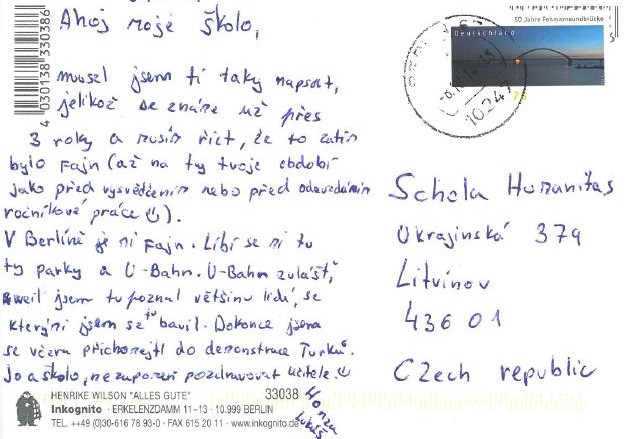 Ahoj moje školo,
musel jsem ti taky napsat,
jelikož se známe už přes
3 roky a musím říct, že to zatím
bylo fajn (až na ty tvoje období
jako před vysvědčením nebo před odevzdáním
ročníkové práce ☺).
V Berlíně je mi fajn. Líbí se mi tu
ty parky a U-Bahn. U-Bahn zvlášť,
weil jsem tu poznal většinu lidí, se
kterými jsem se tu bavil. Dokonce jsem
se včera přichomejtl do demonstrace Turků.
Jo a školo, nezapomeň pozdravovat učitele. ☺
Honza
Lukáš
4 030138 330386
50 Jahre Fehmarnsundbrücke
Deutschland
75
10247
Schola Humanitas
Ukrajinská 379
Litvínov
436 01
Czech republic
HENRIKE WILSON "ALLES GUTE"
33038
Inkognito · ERKELENZDAMM 11–13 · 10.999 BERLIN
TEL. ++49 (0)30-616 78 93-0 · FAX 615 20 11 · www.inkognito.de